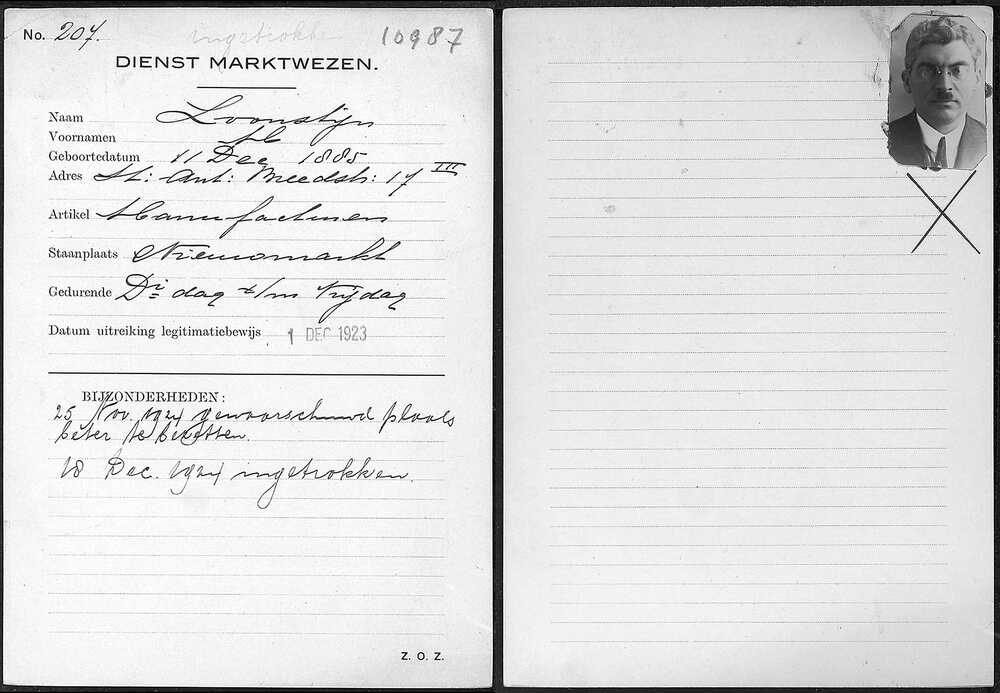 No. 207.
ingetrokken
10987
DIENST MARKTWEZEN.
Naam Loonstijn
Voornamen M
Geboortedatum 11 Dec 1885
Adres St: Ant: Breedstr: 17 III
Artikel Manufacturen
Staanplaats Nieuwmarkt
Gedurende Di=dag t/m Vrijdag
Datum uitreiking legitimatiebewijs 1 DEC 1923
BIJZONDERHEDEN:
25 Nov. 1924 gewaarschuwd plaats
beter te bezetten.
18 Dec. 1924 ingetrokken.
Z. O. Z.